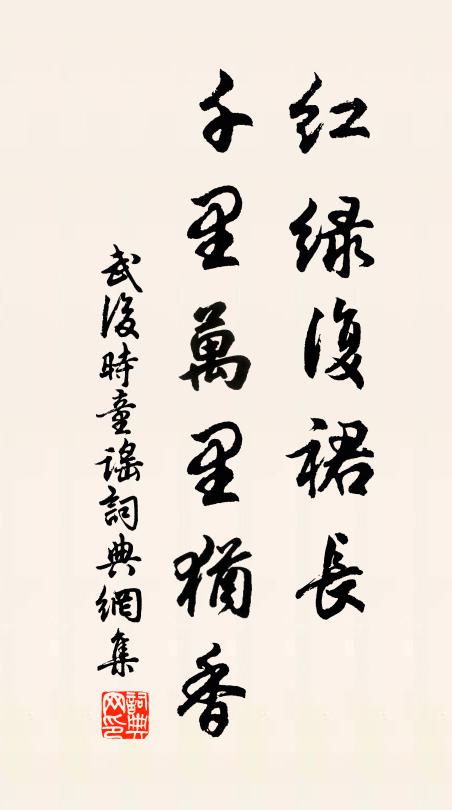 红緑復裙長
千里萬里猶香
武後時童謠詞典網集
詞典网印